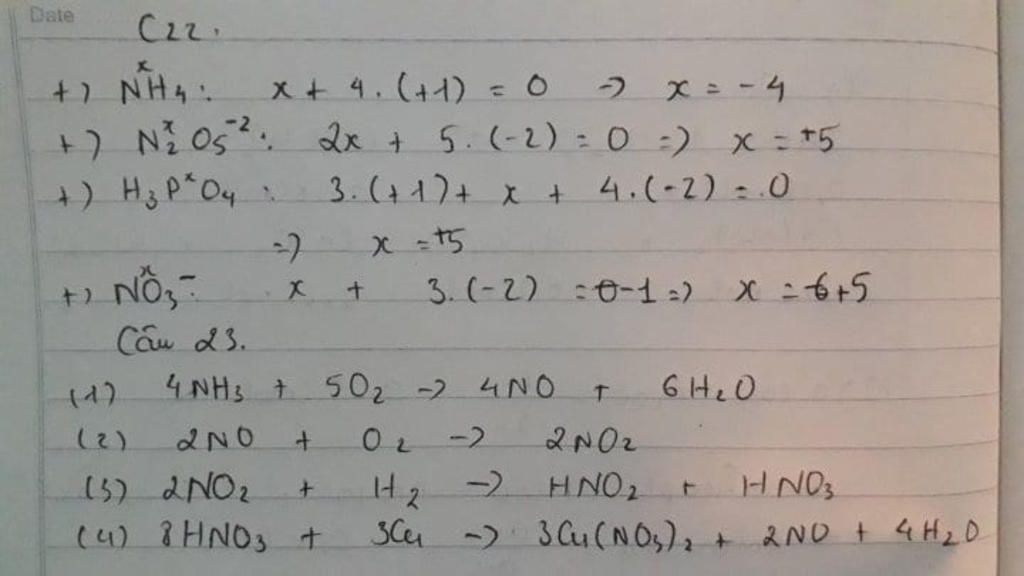 Date
C22.
+) NˣH₄: x + 4.(+1) = 0 → x = -4
+) N₂ˣO₅⁻²: 2x + 5.(-2) = 0 => x = +5
+) H₃PˣO₄: 3.(+1) + x + 4.(-2) = 0
=> x = +5
+) NˣO₃⁻: x + 3.(-2) = 0-1 => x = 6+5
Câu 23.
(1) 4NH₃ + 5O₂ → 4NO + 6H₂O
(2) 2NO + O₂ → 2NO₂
(3) 2NO₂ + H₂ → HNO₂ + HNO₃
(4) 8HNO₃ + 3Cu → 3Cu(NO₃)₂ + 2NO + 4H₂O